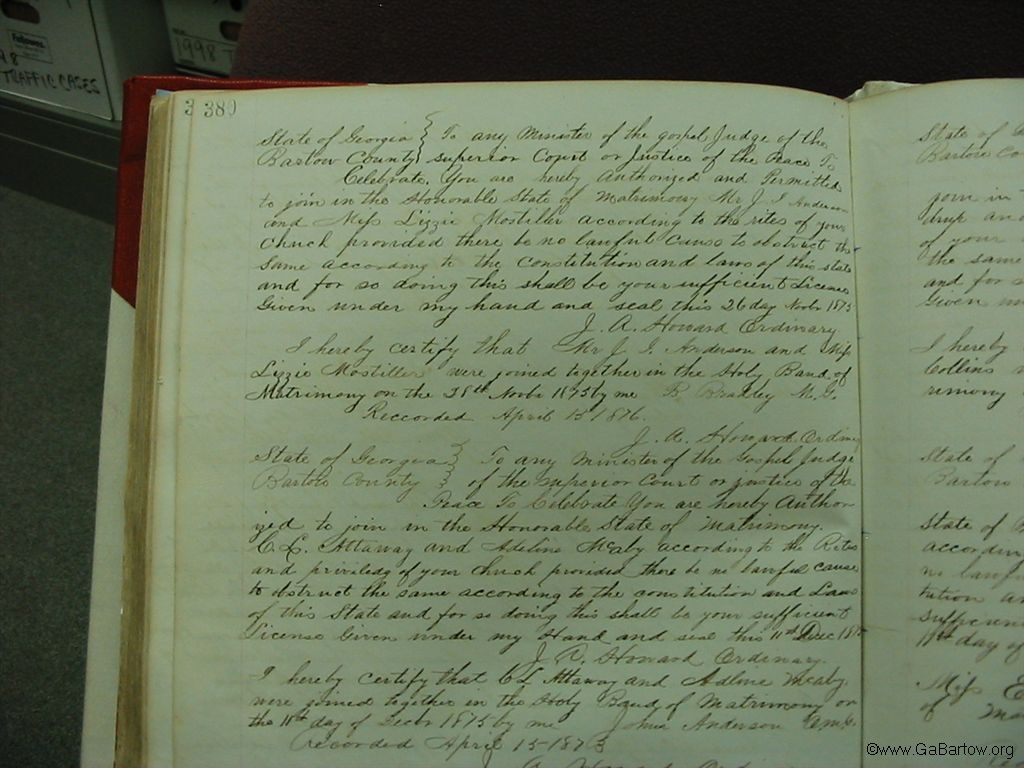 Fellowes
98
TRAFFIC CASES
1998 T
3 380
State of Georgia } To any Minister of the gospel Judge of the
Bartow County } superior Court or Justice of the Peace To
Celebrate, You are hereby Authorized and Permitted
to join in the Honorable State of Matrimony Mr J. I Anderson
and Miss Lizzie Mostiller according to the rites of your
Chuch provided there be no lawful Cause to obstruct the
Same according to the Constitution and laws of this state
and for so doing this shall be your sufficient License
Given under my hand and seal this 26 day Novbr 1875
J. A. Howard Ordinary
I hereby certify that Mr J. I. Anderson and Miss
Lizzie Mostiller were joined together in the Holy Band of
Matrimony on the 28th Novbr 1875 by me B. Bradley M. G.
Reccorded April 15 1876.
J. A. Howard Ordin
State of Georgia } To any minister of the Gospel Judge
Bartow County } of the superior Court or justice of the
Peace To Celebrate You are hereby Author
ized to join in the Honorable State of Matrimony.
C. L. Attaway and Adeline McAby according to the Rites
and priviledg of your Chuch provided there be no lawful cause
to obstruct the same according to the constitution and Laws
of this State and for so doing this shall be your sufficient
License Given under my Hand and seal this 11th Dec 187
J. A. Howard Ordinary.
I hereby certify that C L Attaway and Adline McAby
were joined together in the Holy Band of Matrimony on
the 11th day of Decbr 1875 by me John Anderson
Recorded April 15 187
A. Howard Ordinary
State of
Bartow Co
join in
of your
the same
and for s
Given un
I hereby
Collins
rimony
State of
Bartow
State of
accordin
no lawful
tution an
Sufficien
11th day of
Miss E
of Ma
©www.GaBartow.org